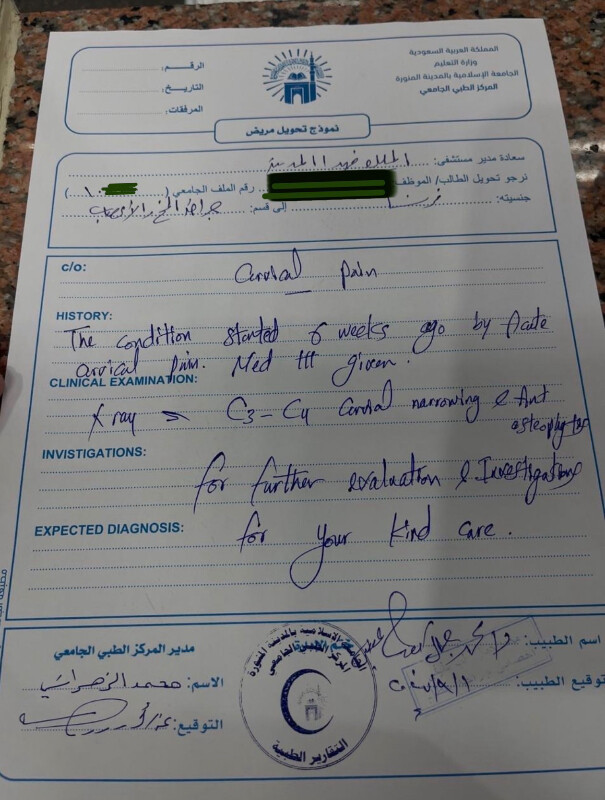 المملكة العربية السعودية
وزارة التعليم
الجامعة الإسلامية بالمدينة المنورة
المركز الطبي الجامعي
الرقم:
التاريخ:
المرفقات:
نموذج تحويل مريض
سعادة مدير مستشفى: الملك فهد المدينة
نرجو تحويل الطالب/ الموظف رقم الملف الجامعي ( )
جنسيته: فرنسا إلى قسم: جراحة المخ والأعصاب
c/o: Cervical pain
HISTORY:
The condition started 6 weeks ago by Acute
cervical pain. Med ttt given.
CLINICAL EXAMINATION:
X ray ⇒ C3 - C4 Cervical narrowing & Ant
osteophytes
INVISTIGATIONS:
for further evaluation & Investigations
EXPECTED DIAGNOSIS:
for your kind care.
اسم الطبيب:
توقيع الطبيب:
مدير المركز الطبي الجامعي
الاسم: محمد الزهراني
التوقيع:
الجامعة الإسلامية بالمدينة المنورة
المركز الطبي الجامعي
التقارير الطبية